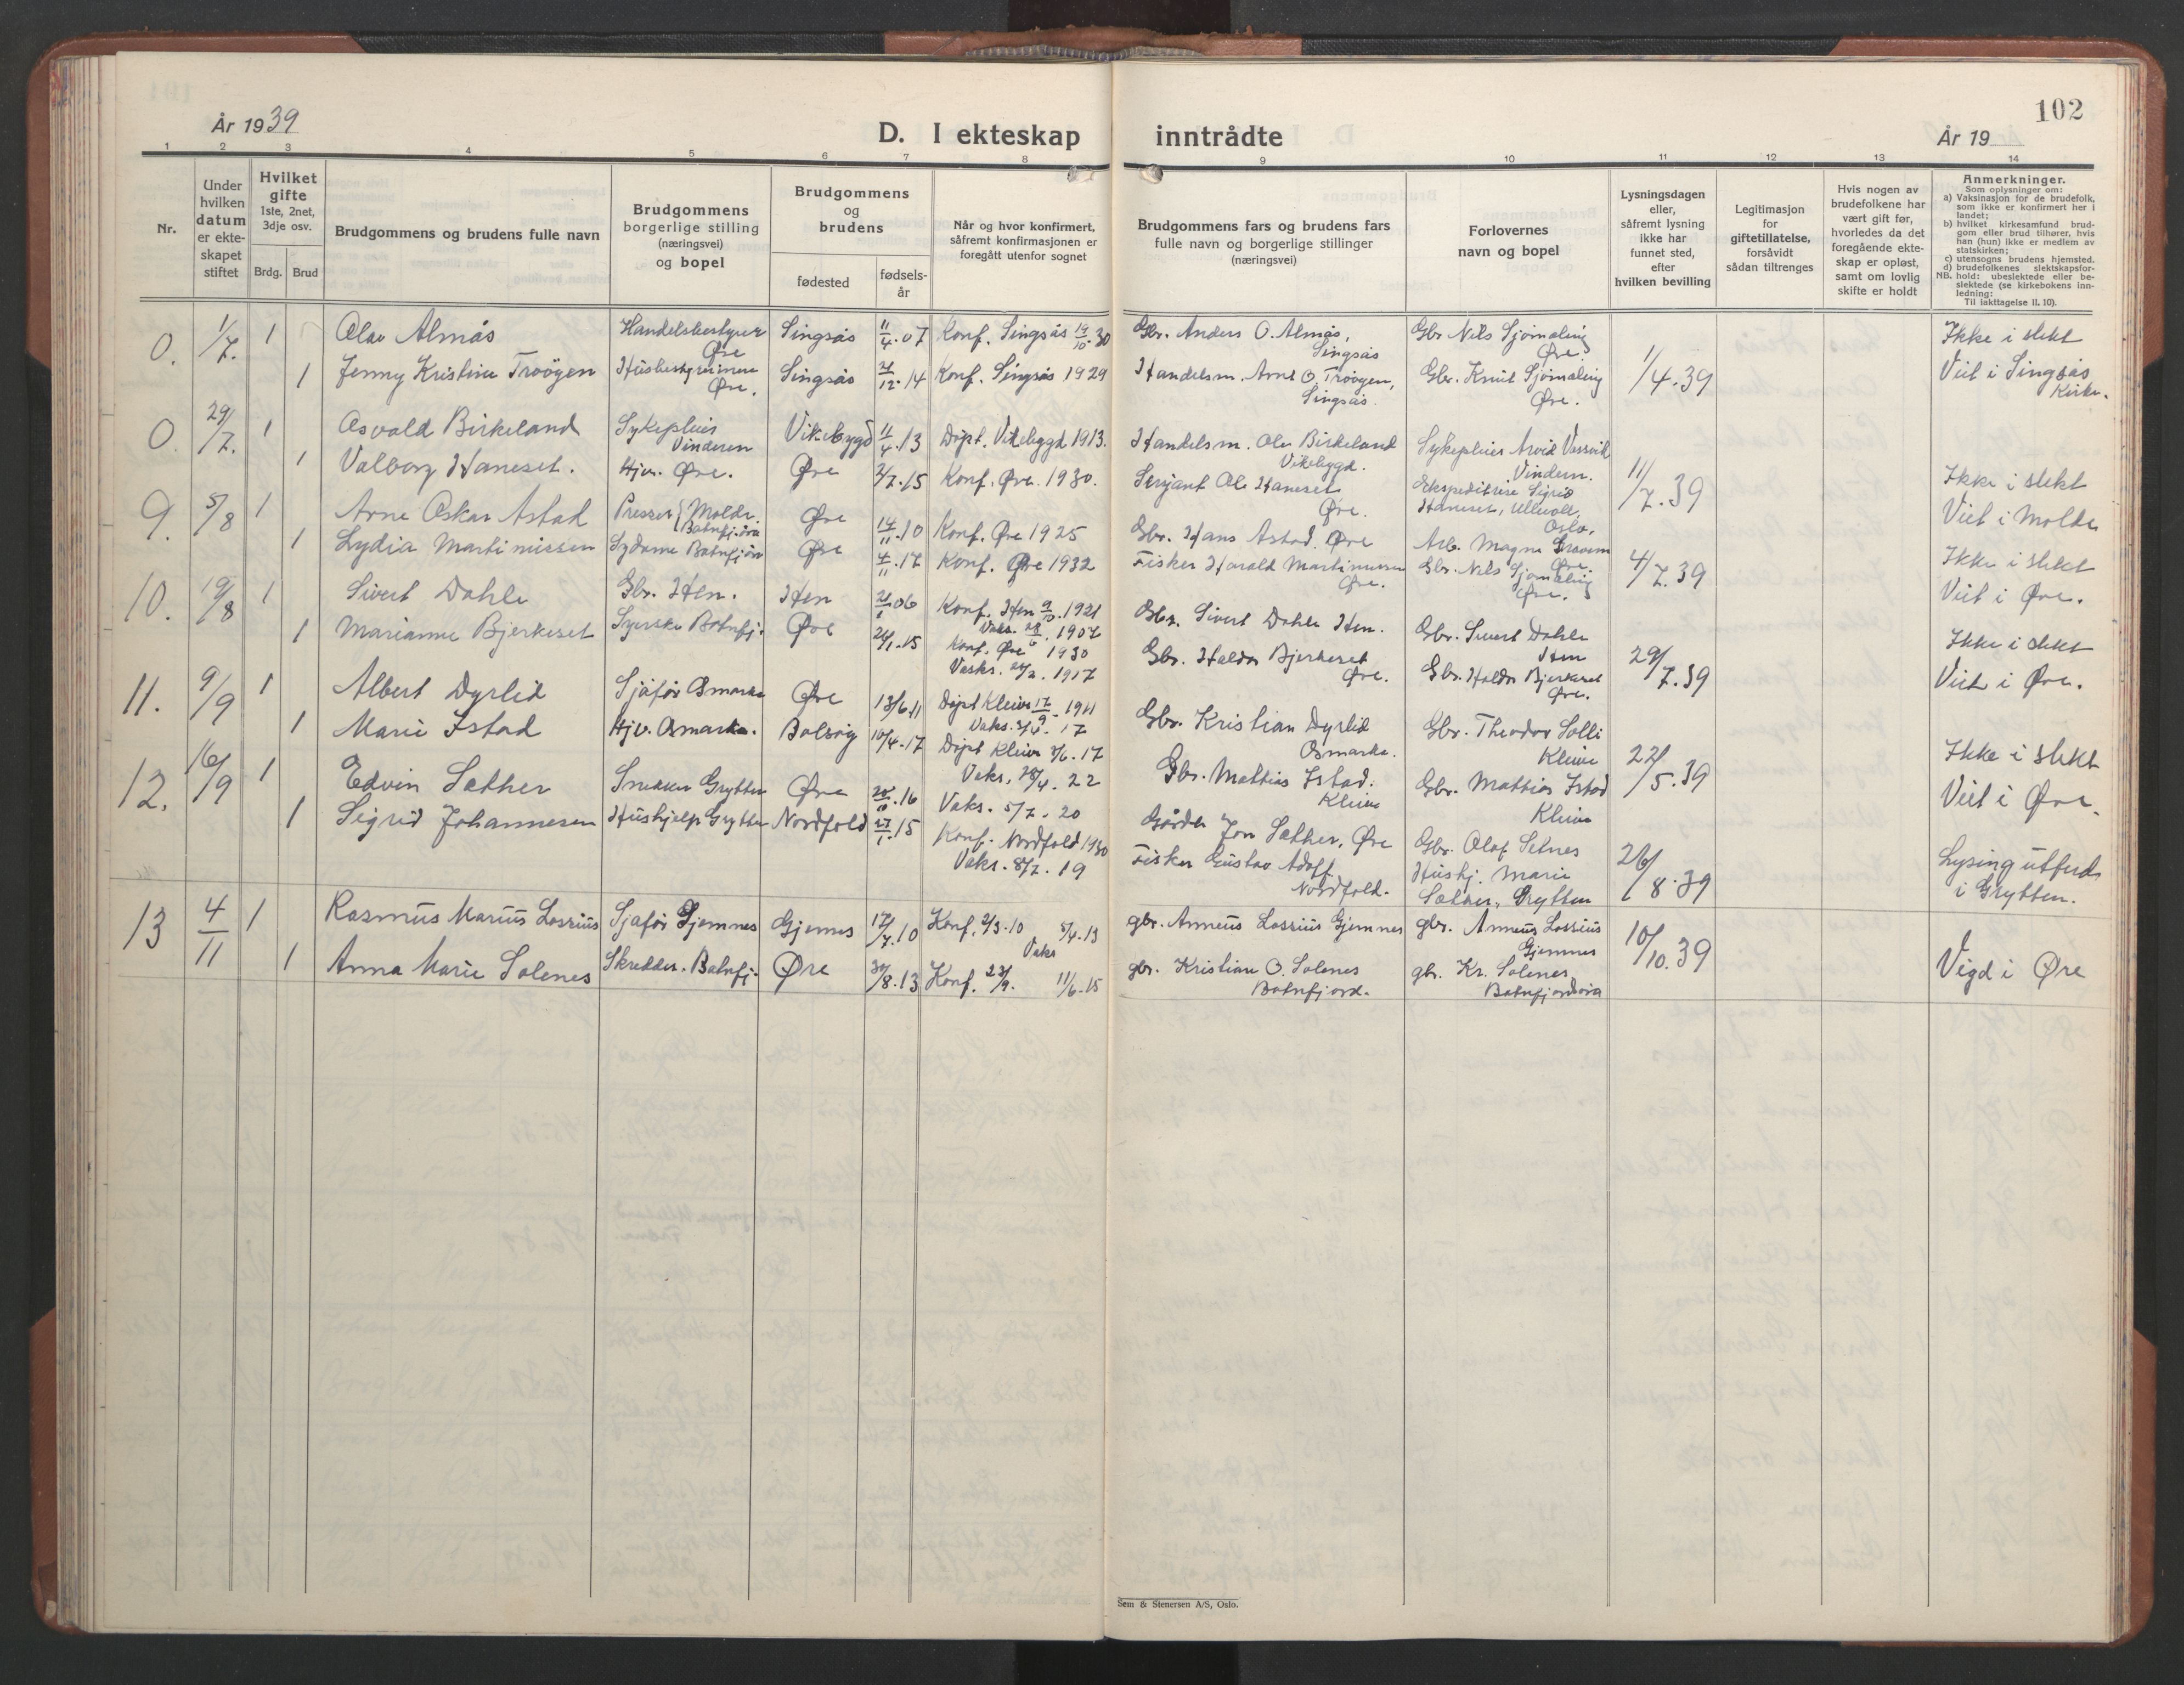 År 1939
D. I ekteskap inntrådte
102
År 19
1 2 3 4 5 6 7 8 9 10 11 12 13 14
Nr.
Under
hvilken
datum
er ekte-
skapet
stiftet
Hvilket
gifte
1ste, 2net,
3dje osv.
Brdg. Brud
Brudgommens og brudens fulle navn
Brudgommens
borgerlige stilling
(næringsvei)
og bopel
Brudgommens
og
brudens
fødested
fødsels-
år
Når og hvor konfirmert,
såfremt konfirmasjonen er
foregått utenfor sognet
Brudgommens fars og brudens fars
fulle navn og borgerlige stillinger
(næringsvei)
Forlovernes
navn og bopel
Lysningsdagen
eller,
såfremt lysning
ikke har
funnet sted,
efter
hvilken bevilling
Legitimasjon
for
giftetillatelse,
forsåvidt
sådan tiltrenges
Hvis nogen av
brudefolkene har
vært gift før,
hvorledes da det
foregående ekte-
skap er opløst,
samt om lovlig
skifte er holdt
Anmerkninger.
Som oplysninger om:
a) Vaksinasjon for de brudefolk,
som ikke er konfirmert her i
landet;
b) hvilket kirkesamfund brud-
gom eller brud tilhører, hvis
han (hun) ikke er medlem av
statskirken;
c) utensogns brudens hjemsted.
d) brudefolkenes slektskapsfor-
NB. hold: ubeslektede eller be-
slektede (se kirkebokens inn-
ledning:
Til iakttagelse II. 10).
0. 1/7. 1 Olav Almås Handelsbestyrer Øre Singsås 11/4.07 Konf. Singsås 19/10.30 Gbr. Anders O. Almås, Singsås Gbr Nils Sjømæling Øre. 1/4.39 Ikke i slekt
1 Jenny Kristine Trøøgen Husbestyrerinne Øre. Singsås 21/12.14 Konf. Singsås 1929 Handelsm. Arne O. Trøøgen, Singsås. Gbr. Knut Sjømæling Øre. Viet i Singsås Kirke.
0. 29/7. 1 Asvald Birkeland Sykepleier Vinderen Vikebygd 11/4.13 Døpt. Vikebygd 1913. Handelsm. Ole Birkeland Vikebygd. Sykepleier Arvid Vassvik Vindern. 11/7.39 Ikke i slekt
1 Valborg Haneset. Hjv. Øre. Øre 2/7.15 Konf. Øre. 1930. Serjant Ole Haneset Øre. Ekspeditrise Sigrid Haneset, Ullevoll, Oslo. Viet i Molde
9. 5/8 1 Arne Oskar Astad Presser Molde. Batnfj.øra Øre 14/11.10 Konf. Øre 1925 Gbr. Hans Astad. Øre Arb. Magne Gravem Øre. 4/7.39 Ikke i slekt
1 Lydia Martinussen Sydame Batnfjør Øre 4/11.17 Konf. Øre 1932 Fisker Harald Martinussen Øre. Gbr. Nils Sjømæling Øre. Viet i Øre.
10. 19/8 1 Sivert Dahle Gbr. Hen. Hen 21/1.06 Konf. Hen 9/10.1921 Vaks. 1907 Gbr. Sivert Dahle Hen. Gbr. Sivert Dahle Hen 29/7.39 Ikke i slekt
1 Marianne Bjerkeset Syerske Batnfj. Øre 24/1.15 Konf. Øre 1930 Vaks. 1917 Gbr. Halda Bjerkeset Øre. Gbr. Halda Bjerkeset Øre. Viet i Øre.
11. 9/9 1 Albert Dyrlid Sjåfør Osmarka Øre 13/6.11 Døpt Kleive 17/9.1911 Gbr. Kristian Dyrlid Osmarka. Gbr. Theodor Solli Kleive 22/5.39 Ikke i slekt
1 Marie Istad Hjv. Osmarka. Bolsøy 16/4.17 Døpt Kleive 3/6.17 Vaks. 28/4.22 Gbr. Mattias Istad. Kleive Gbr. Mattias Istad Kleive Viet i Øre.
12. 16/9 1 Edvin Sæther Snekker Grytten Øre 16 Vaks. 5/7.20 Gårdbr Jon Sæther, Øre Gbr. Olaf Setnes 26/8.39 Lysing utferd
1 Sigrid Johannesen Hushjelp Grytten Nordfold 27/1.15 Konf. Nordfold 1930 Vaks. 8/7.19 Fisker Gustav Adolf Nordfold. Hushj. Marie Sæther, Grytten i Grytten.
13 4/11 1 Rasmus Marius Lossius Sjåfør Gjemnes Gjemnes 17/4.10 Konf. 2/3.10 Vaks 5/4.13 gbr. Anneus Lossius Gjemnes gbr. Anneus Lossius Gjemnes 10/10.39
1 Anna Marie Solenes Skredder. Batnfj. Øre 30/8.13 Konf. 23/9. 11/6.15 gbr. Kristian O. Solenes Batnfjord. gbr. Kr. Solenes Batnfjordøra Vigd i Øre
Sem & Stenersen A/S, Oslo.